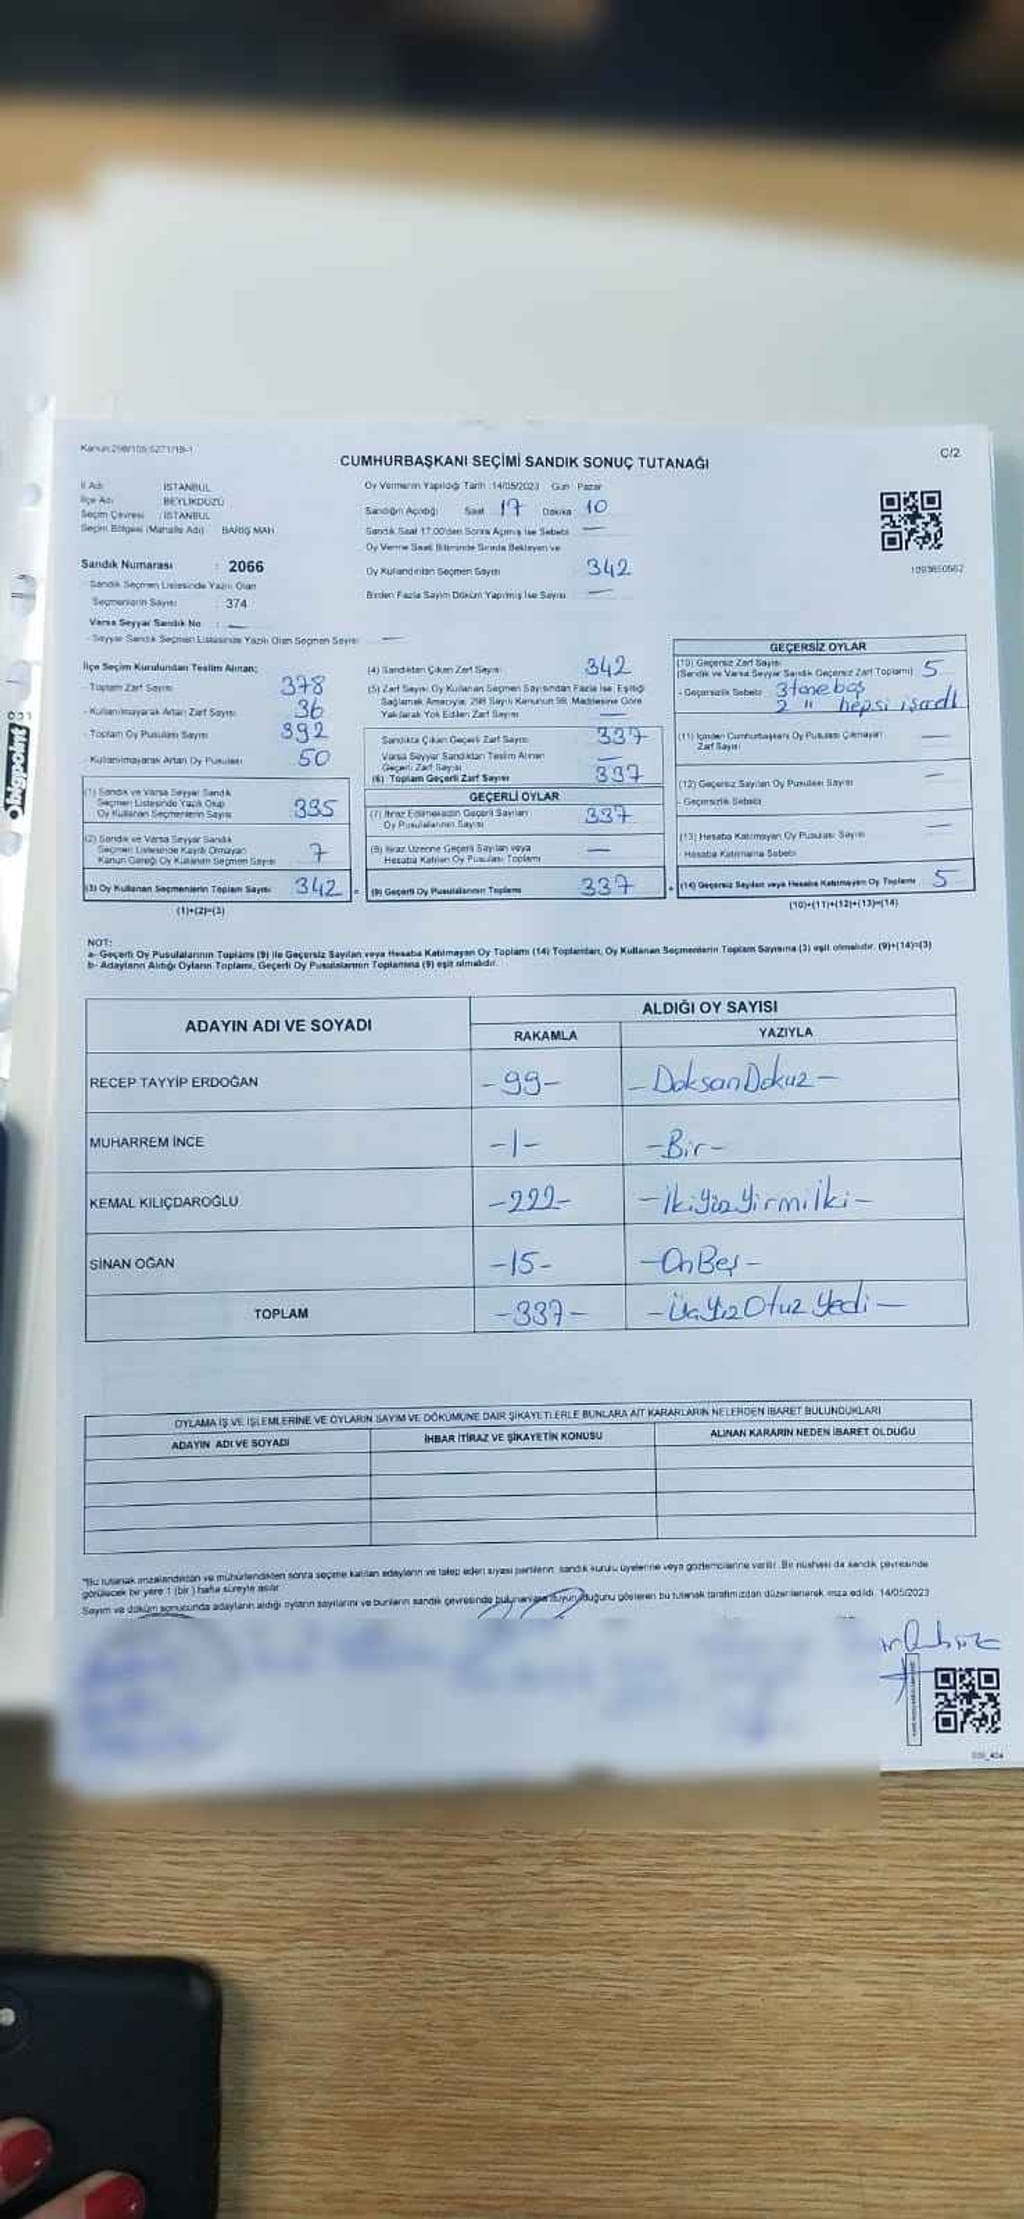 C/2
CUMHURBAŞKANI SEÇİMİ SANDIK SONUÇ TUTANAĞI
İl Adı : İSTANBUL
İlçe Adı : BEYLİKDÜZÜ
Seçim Çevresi : İSTANBUL
Seçim Bölgesi (Mahalle Adı) BARIŞ MAH
Sandık Numarası : 2066
Sandık Seçmen Listesinde Yazılı Olan
Seçmenlerin Sayısı : 374
Varsa Seyyar Sandık No : —
- Seyyar Sandık Seçmen Listesinde Yazılı Olan Seçmen Sayısı —
Oy Vermenin Yapıldığı Tarih :14/05/2023 Gün Pazar
Sandığın Açıldığı Saat 17 Dakika 10
Sandık Saat 17.00'den Sonra Açılmış İse Sebebi —
Oy Verme Saati Bitiminde Sırada Bekleyen ve
Oy Kullandırılan Seçmen Sayısı 342
Birden Fazla Sayım Döküm Yapılmış İse Sayısı —
1093650562
İlçe Seçim Kurulundan Teslim Alınan;
- Toplam Zarf Sayısı 378
- Kullanılmayarak Artan Zarf Sayısı 36
- Toplam Oy Pusulası Sayısı 392
- Kullanılmayarak Artan Oy Pusulası 50
(1) Sandık ve Varsa Seyyar Sandık
Seçmen Listesinde Yazılı Olup
Oy Kullanan Seçmenlerin Sayısı 335
(2) Sandık ve Varsa Seyyar Sandık
Seçmen Listesinde Kayıtlı Olmayan
Kanun Gereği Oy Kullanan Seçmen Sayısı 7
(3) Oy Kullanan Seçmenlerin Toplam Sayısı 342
(1)+(2)=(3)
(4) Sandıktan Çıkan Zarf Sayısı 342
(5) Zarf Sayısı Oy Kullanan Seçmen Sayısından Fazla İse, Eşitliği
Sağlamak Amacıyla, 298 Sayılı Kanunun 98. Maddesine Göre
Yakılarak Yok Edilen Zarf Sayısı —
Sandıkta Çıkan Geçerli Zarf Sayısı 337
Varsa Seyyar Sandıktan Teslim Alınan
Geçerli Zarf Sayısı —
(6) Toplam Geçerli Zarf Sayısı 337
GEÇERLİ OYLAR
(7) İtiraz Edilmeksizin Geçerli Sayılan
Oy Pusulalarının Sayısı 337
(8) İtiraz Üzerine Geçerli Sayılan veya
Hesaba Katılan Oy Pusulası Toplamı —
(9) Geçerli Oy Pusulalarının Toplamı 337
GEÇERSİZ OYLAR
(10) Geçersiz Zarf Sayısı
(Sandık ve Varsa Seyyar Sandık Geçersiz Zarf Toplamı) 5
- Geçersizlik Sebebi 3 tane boş
2 " hepsi işaretli
(11) İçinden Cumhurbaşkanı Oy Pusulası Çıkmayan
Zarf Sayısı —
(12) Geçersiz Sayılan Oy Pusulası Sayısı —
- Geçersizlik Sebebi
(13) Hesaba Katılmayan Oy Pusulası Sayısı —
- Hesaba Katılmama Sebebi
(14) Geçersiz Sayılan veya Hesaba Katılmayan Oy Toplamı 5
(10)+(11)+(12)+(13)=(14)
NOT:
a- Geçerli Oy Pusulalarının Toplamı (9) ile Geçersiz Sayılan veya Hesaba Katılmayan Oy Toplamı (14) Toplamları, Oy Kullanan Seçmenlerin Toplam Sayısına (3) eşit olmalıdır. (9)+(14)=(3)
b- Adayların Aldığı Oyların Toplamı, Geçerli Oy Pusulalarının Toplamına (9) eşit olmalıdır.
ADAYIN ADI VE SOYADI
ALDIĞI OY SAYISI
RAKAMLA YAZIYLA
RECEP TAYYİP ERDOĞAN -99- -DoksanDokuz-
MUHARREM İNCE -1- -Bir-
KEMAL KILIÇDAROĞLU -222- -İkiYüzYirmiİki-
SİNAN OĞAN -15- -OnBeş-
TOPLAM -337- -ÜçYüzOtuzYedi-
OYLAMA İŞ VE İŞLEMLERİNE VE OYLARIN SAYIM VE DÖKÜMÜNE DAİR ŞİKAYETLERLE BUNLARA AİT KARARLARIN NELERDEN İBARET BULUNDUKLARI
ADAYIN ADI VE SOYADI
İHBAR İTİRAZ VE ŞİKAYETİN KONUSU
ALINAN KARARIN NEDEN İBARET OLDUĞU
"Bu tutanak imzalandıktan ve mühürlendikten sonra seçime katılan adayların ve talep eden siyasi partilerin sandık kurulu üyelerine veya gözlemcilerine verilir. Bir nüshası da sandık çevresinde
görülecek bir yere 1 (bir) hafta süreyle asılır.
Sayım ve döküm sonucunda adayların aldığı oyların sayılarını ve bunların sandık çevresinde bulunanlara duyurulduğunu gösteren bu tutanak tarafımızdan düzenlenerek imza edildi. 14/05/2023
bigpoint